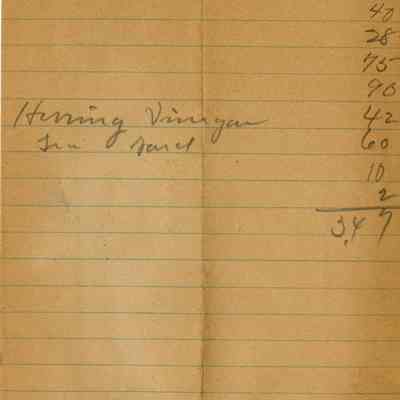 40
28
75
90
Herring Vinegar 42
60
10
2
3.47